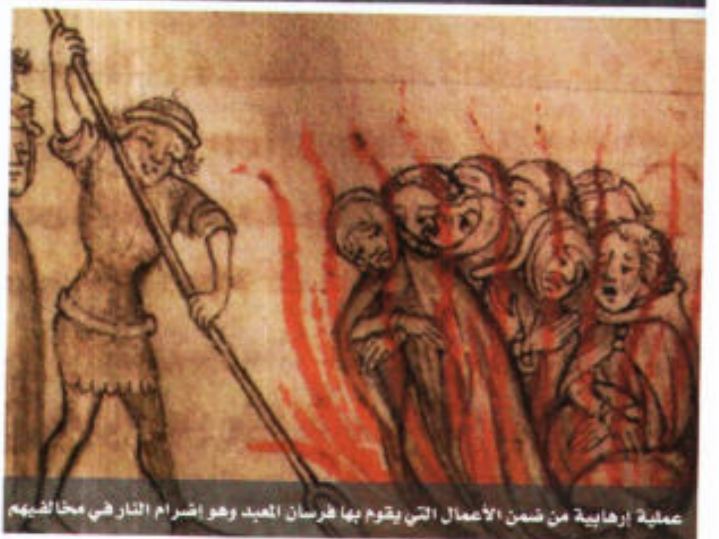 عملية إرهابية من ضمن الأعمال التي يقوم بها فرسان المعبد وهو إضرام النار في مخالفيهم